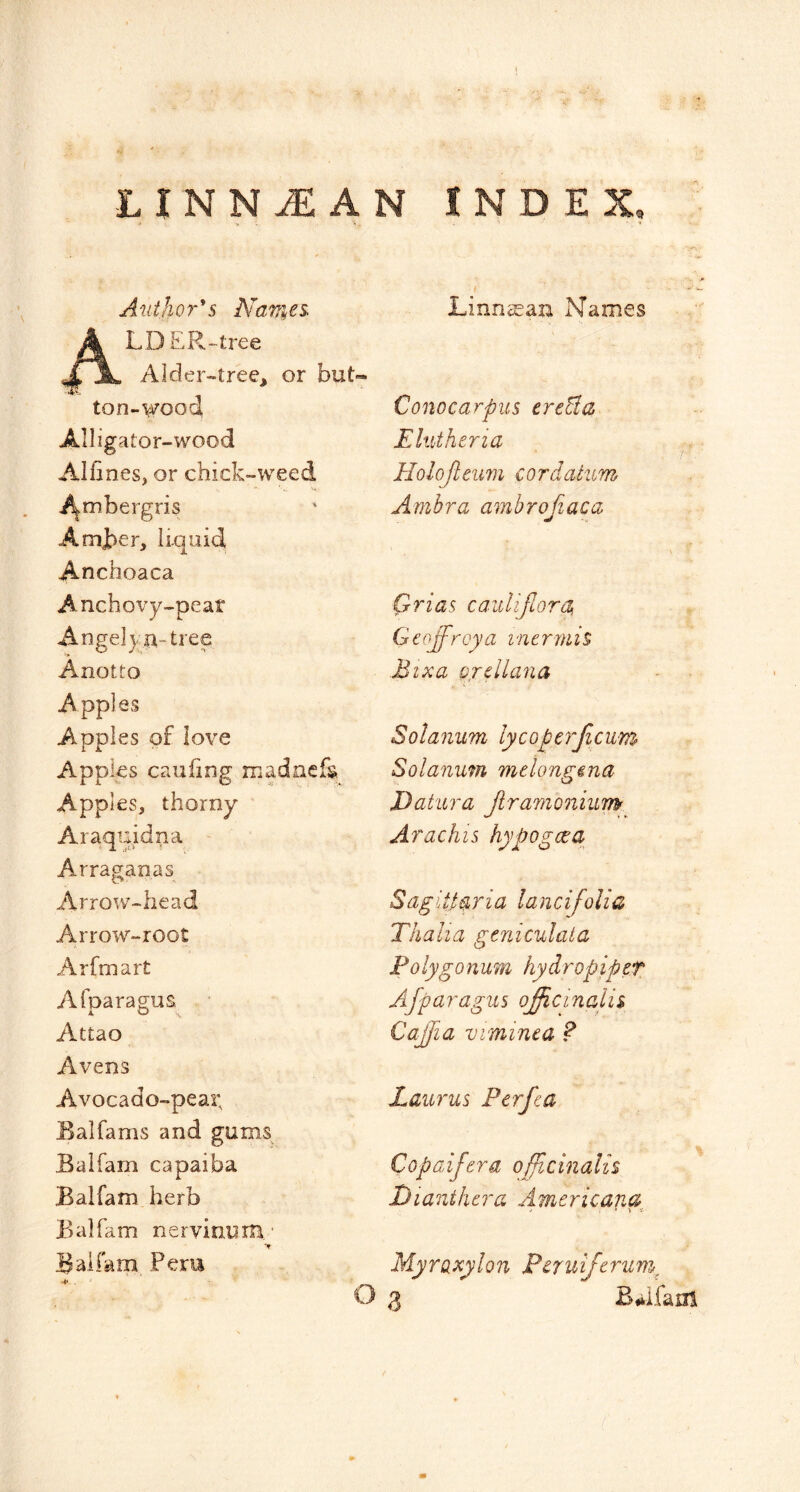 LINNÆAN INDEX,
Author's Names. Linnæan Names
ALDER-tree
Alder-tree, or but-
ton-wood Conocarpus erecta
Alligator-wood Elutheria
Alſines, or chick-weed Holoſteum cordatum
Ambergris Ambra ambroſiaca
Amber, liquid
Anchoaca
Anchovy-pear Grias cauliflora
Angelyn-tree Geoffroya inermis
Anotto Bixa orellana
Apples
Apples of love Solanum lycoperſicum
Apples cauſing madneſs Solanum melongena
Apples, thorny Datura ſtramonium
Araquidna Arachis hypogæa
Arraganas
Arrow-head Sagittaria lancifolia
Arrow-root Thalia geniculata
Arſmart Polygonum hydropiper
Aſparagus Aſparagus officinalis
Attao Caſſia viminea ?
Avens
Avocado-pear Laurus Perſea
Balſams and gums
Balſam capaiba Copaifera officinalis
Balſam herb Dianthera Americana
Balſam nervinum
Balſam Peru Myroxylon Peruiferum
O 3 Balſam